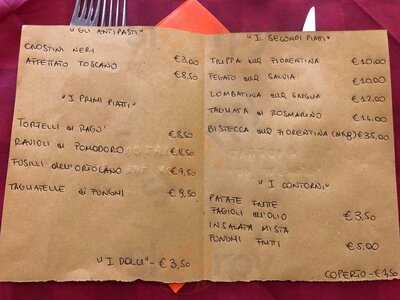 "GLI ANTIPASTI"
CROSTINI NERI €3,00
AFFETTATO TOSCANO €8,50
"I PRIMI PIATTI"
TORTELLI al RAGU' €8,50
RAVIOLI al POMODORO €8,50
FUSILLI dell'ORTOLANO €7,50
TAGLIATELLE ai FUNGHI €8,50
"I DOLCI" - €3,50
"I SECONDI PIATTI"
TRIPPA alla FIORENTINA €10,00
FEGATO alla SALVIA €10,00
LOMBATINA alla GRIGLIA €12,00
TAGLIATA al ROSMARINO €14,00
BISTECCA alla FIORENTINA (al Kg) €35,00
"I CONTORNI"
PATATE FRITTE
FAGIOLI all'OLIO €3,50
INSALATA MISTA
FUNGHI FRITTI €5,00
COPERTO - €1,50